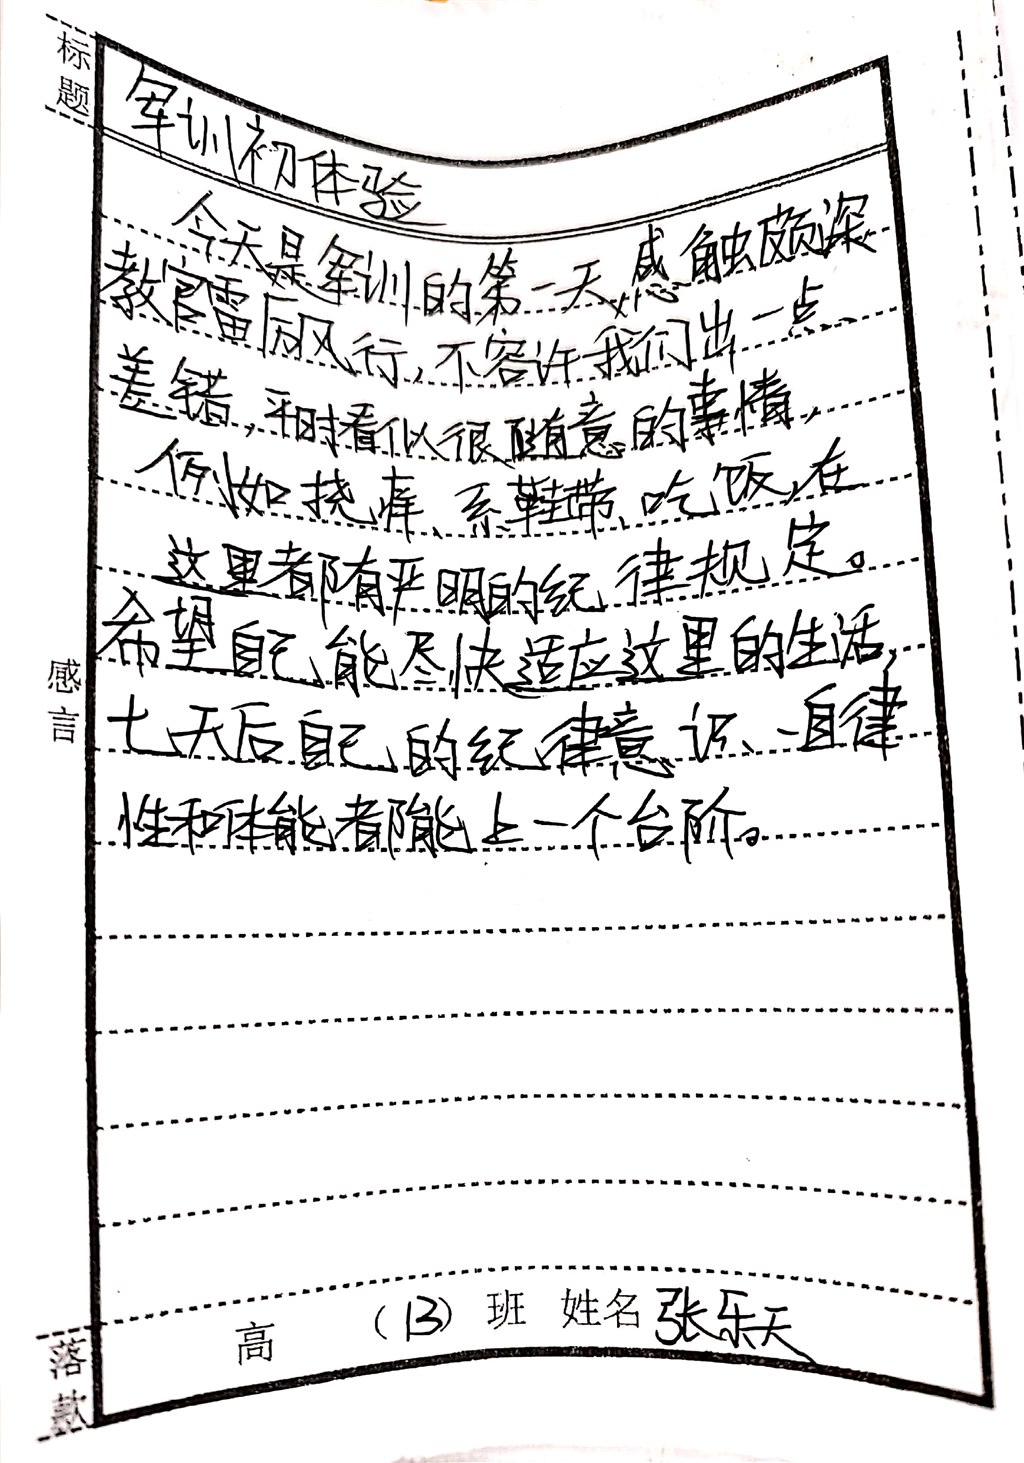 标题
军训初体验
今天是军训的第一天,感触颇深
教官雷厉风行,不容许我们出一点
差错,平时看似很随意的事情,
例如挠痒、系鞋带、吃饭,在
这里都有严明的纪律规定。
希望自己能尽快适应这里的生活,
七天后自己的纪律意识、自律
性和体能都能上一个台阶。
感言
落款
高 (13) 班 姓名 张乐天